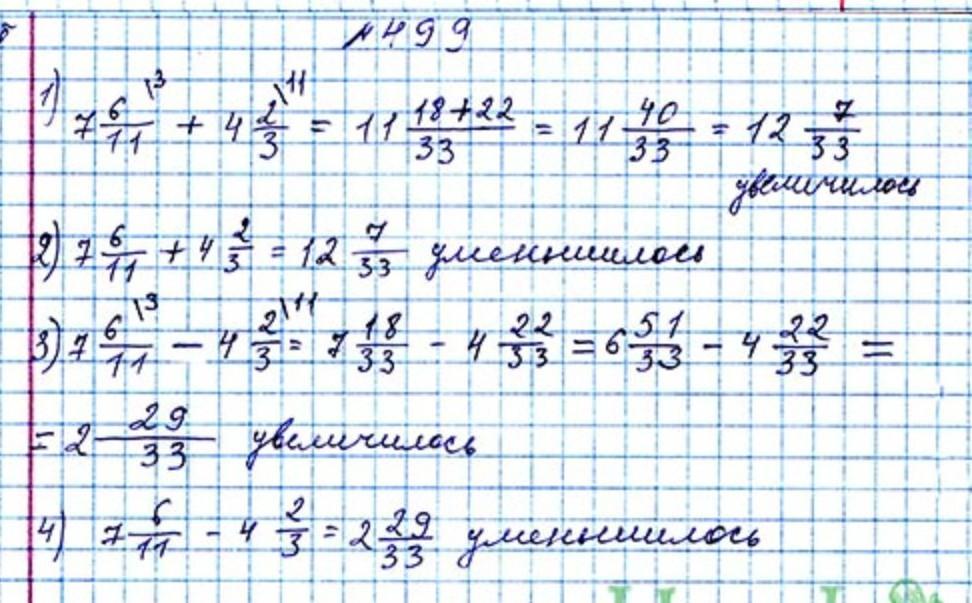 №499
1) 7 6/11 \3 + 4 2/3 \11 = 11 18+22/33 = 11 40/33 = 12 7/33
увеличилось
2) 7 6/11 + 4 2/3 = 12 7/33 уменьшилось
3) 7 6/11 \3 − 4 2/3 \11 = 7 18/33 - 4 22/33 = 6 51/33 − 4 22/33 =
= 2 29/33 увеличилось
4) 7 6/11 - 4 2/3 = 2 29/33 уменьшилось